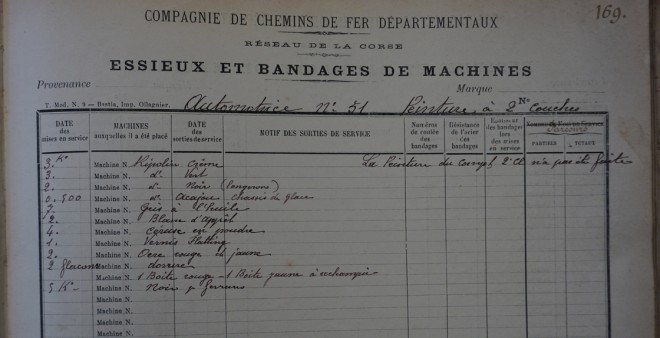 169.
COMPAGNIE DE CHEMINS DE FER DÉPARTEMENTAUX
RÉSEAU DE LA CORSE
ESSIEUX ET BANDAGES DE MACHINES
Provenance Marque
T. Mod. N. 9 — Bastia, Imp. Ollagnier. Automotrice No 51 Peinture à 2 Couches
DATE des mises en service MACHINES auxquelles il a été placé DATE des sorties de service MOTIF DES SORTIES DE SERVICE Numéros de coulée des bandages Résistances de l'acier des bandages des bandages lors des mises en service Parcours PARTIELS TOTAUX
3. Ko Machine N. Ripolin Crème La Peinture du Compt. 2e Cl. n'a pas été faite
3. Machine N. do Vert
2. Machine N. do Noir (longerons)
0.500 Machine N. do Acajou chassis de glace
7. Machine N. Gris à l'huile
2. Machine N. Blanc d'Apprêt
4. Machine N. Céruse en poudre
1. Machine N. Vernis Flatting
2. Machine N. Ocre rouge et jaune
2 flacons Machine N. dorure
Machine N. 1 Boîte rouge - 1 Boîte jaune à rechampir
5 Ko Machine N. Noir p ferrures
Machine N.
Machine N.
Machine N.